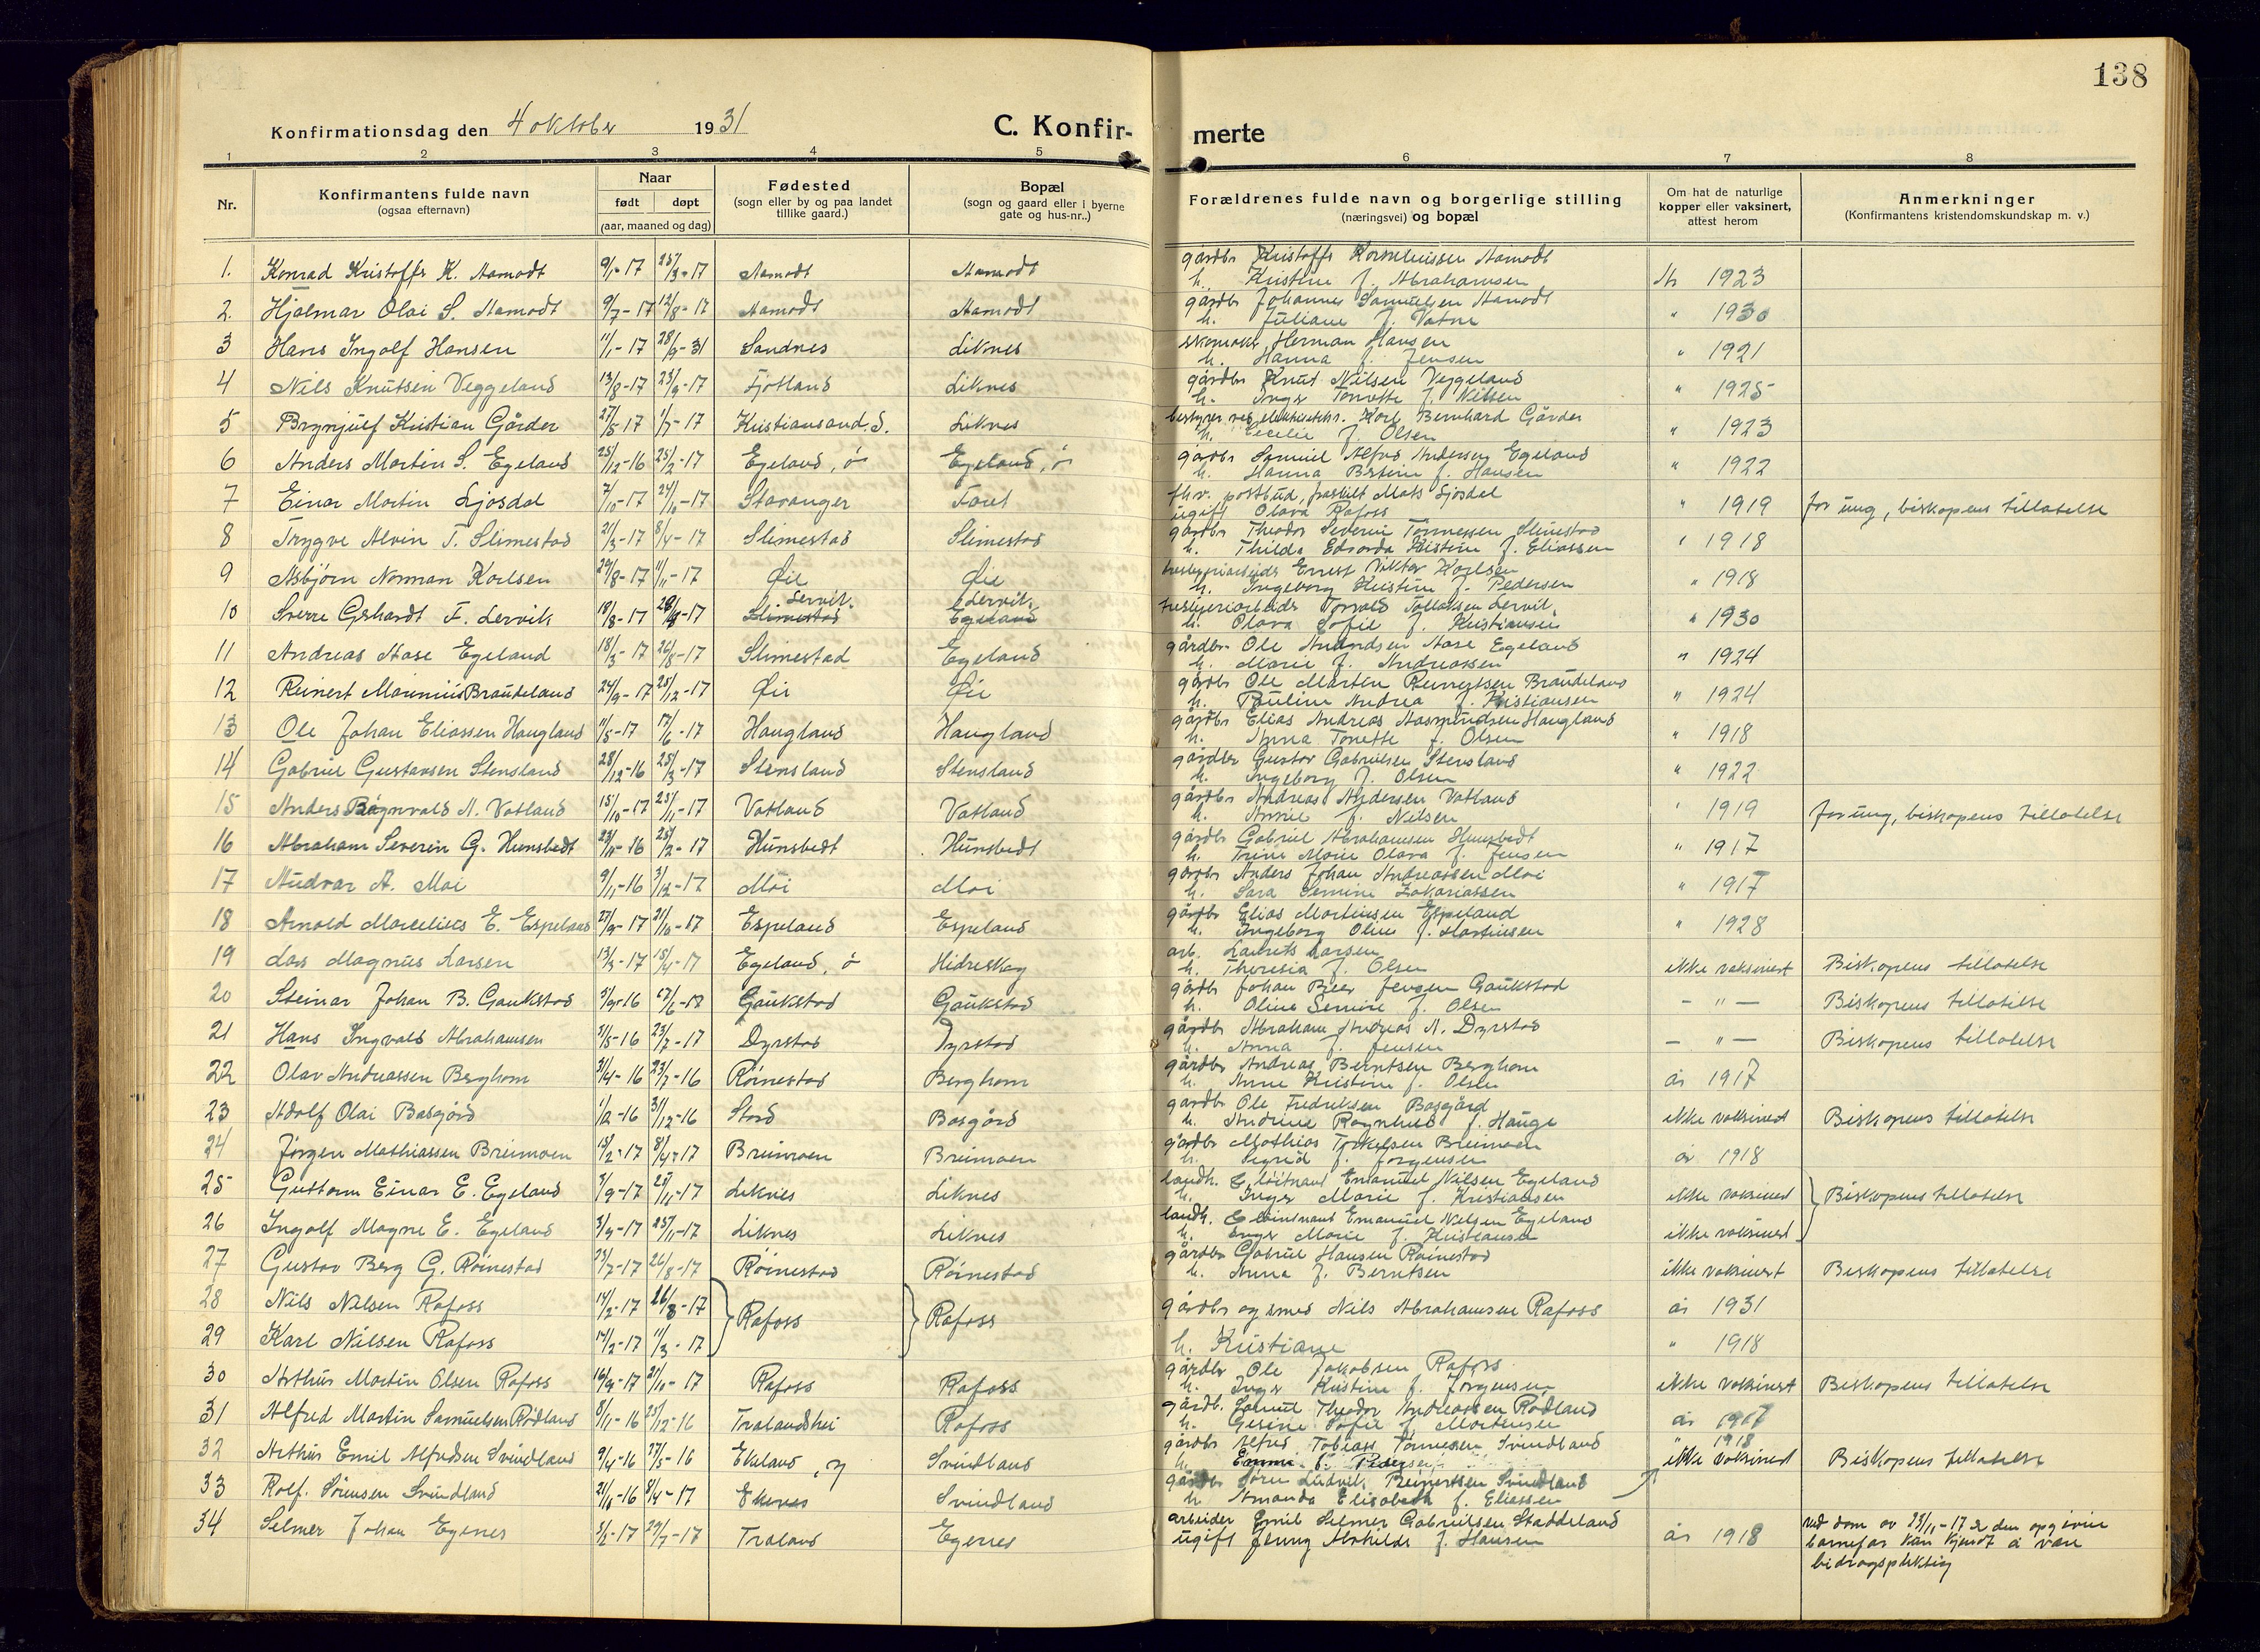 138
Konfirmationsdag den 4 oktober 1931
C. Konfir-
merte
1 2 3 4 5 6 7 8
Nr.
Konfirmantens fulde navn
(ogsaa efternavn)
Naar
født døpt
(aar, maaned og dag)
Fødested
(sogn eller by og paa landet
tillike gaard.)
Bopæl
(sogn og gaard eller i byerne
gate og hus-nr..)
Forældrenes fulde navn og borgerlige stilling
(næringsvei) og bopæl
Om hat de naturlige
kopper eller vaksinert,
attest herom
Anmerkninger
(Konfirmantens kristendomskundskap m. v.)
1. Konrad Kristoffs K. Aamodt 9/1-17 25/3-17 Aamodt Aamodt
gårdbr Kristoffs Korneliussen Aamodt
h. Kristine f. Abrahamsen år 1923
2. Hjalmar Olai S. Aamodt 9/7-17 12/8-17 Aamodt Aamodt
gårdbr Johannes Samuelsen Aamodt
h. Juliane f. Vatne " 1930
3 Hans Ingolf Hansen 11/1-17 28/9-31 Sandnes Liknes
skomaker Herman Hansen
h. Hanna f. Jensen " 1921
4 Nils Knutsen Veggeland 13/8-17 23/9-17 Fjotland Liknes
gårdbr Knut Nilsen Veggeland
h. Inger Tonette f. Nilsen " 1925
5 Brynjulf Kristian Gårder 27/5-17 1/7-17 Kristiansand. S. Liknes
bestyrer ved Karl Bernhard Gårder
h. Cecilie f. Olsen " 1923
6 Anders Martin S. Egeland 25/12-16 25/2-17 Egeland, ö Egeland, ö
gårdbr Samuel Alfred Andersen Egeland
h. Hanna Bertine f. Hansen " 1922
7 Einar Martin Ljosdal 7/10-17 24/10-17 Stavanger Faret
fhv. postbud, fraskilt Mats Ljosdal
ugift Olava Rafoss " 1919 for ung, biskopens tillatelse
8 Trygve Alvin T. Slimestad 21/3-17 8/4-17 Slimestad Slimestad
gårdbr Theodor Severin Tönnessen Slimestad
h. Thilda Edvarda Kristine f. Eliassen " 1918
9 Asbjörn Norman Karlsen 29/8-17 11/11-17 Öie Öie
Ernst Viktor Karlsen
h. Ingeborg Kristine f. Pedersen " 1918
10 Sverre Gerhardt T. Lervik 18/3-17 28/8-17 Lervik. Slimestad Lervik. Egeland
Torvald Tollaksen Lervik.
h. Olava Sofie f. Kristiansen " 1930
11 Andreas Aase Egeland 18/3-17 26/8-17 Slimestad Egeland
gårdbr. Ole Aase Egeland
h. Marie f. Andreassen " 1924
12 Reinert Marinius Braudeland 24/9-17 25/12-17 Öie Öie
gårdbr Ole Martin Reinertsen Braudeland
h. Pauline Andrea f. Kristiansen " 1924
13 Ole Johan Eliassen Haugland 11/5-17 17/6-17 Haugland Haugland
gårdbr Elias Andreas Aasmundsen Haugland
h. Anna Tonette f. Olsen " 1918
14 Gabriel Gustavsen Stensland 28/12-16 25/3-17 Stensland Stensland
gårdbr Gustav Gabrielsen Stensland
h. Ingeborg f. Olsen " 1922
15 Anders Ragnvald A. Vatland 15/10-17 25/11-17 Vatland Vatland
gårdbr Andreas Andersen Vatland
h. Annie f. Nilsen " 1919 for ung, biskopens tillatelse
16 Abraham Severin G. Hunsbedt 25/2-17 Hunsbedt Hunsbedt
gårdbr Gabriel Abrahamsen Hunsbedt
h. Trine Marie Olava f. Jensen " 1917
17 Audvar A. Moi 9/11-16 Moi Moi
gårdbr Anders Johan Andreassen Moi
h. Sara Semine Zakariassen " 1917
18 Arnold Marcelius E. Espeland 27/9-17 21/10-17 Espeland Espeland
gårdbr Elias Martinsen Espeland
h. Ingeborg Oline f. Martinsen " 1928
19 Lars Magnus Larsen 13/3-17 15/4-17 Egeland, ö Hidreskog
arb. Laurits Larsen
h. Theresia f. Olsen ikke vaksinert Biskopens tillatelse
20 Steinar Johan B. Gaukstad Gaukstad Gaukstad
gårdbr Johan Beer Jensen Gaukstad
h. Oline Semine f. Olsen — " — Biskopens tillatelse
21 Hans Ingvald Abrahamsen 23/7-17 Dyrstad Dyrstad
gårdbr Abraham Andreas A. Dyrstad
h. Anna f. Jensen — " — Biskopens tillatelse
22 Olav Andreassen Berghom 23/7-16 Röinestad Berghom
gårdbr Andreas Berntsen Berghom
h. Anne Kristine f. Olsen år 1917
23 Adolf Olai Basgård 31/12-16 Stord Basgård
gårdbr Ole Fredriksen Basgård
h. Andrine Ragnhild f. Hauge ikke vaksinert Biskopens tillatelse
24 Jörgen Mathiassen Breimoen 15/2-17 8/4-17 Breimoen Breimoen
gårdbr Mathias Torkelsen Breimoen
h. Sigrid f. Jörgensen år 1918
25 Guttorm Einar E. Egeland 3/9-17 25/11-17 Liknes Liknes
landh. & löitnant Emanuel Nilsen Egeland
h. Inger Marie f. Kristiansen ikke vaksinert Biskopens tillatelse
26 Ingolf Magne E. Egeland 3/9-17 25/11-17 Liknes Liknes
landh. & löitnant Emanuel Nilsen Egeland
h. Inger Marie f. Kristiansen ikke vaksinert
27 Gustav Berg G. Röinestad 23/7-17 26/8-17 Röinestad Röinestad
gårdbr Gabriel Hansen Röinestad
h. Anna f. Berntsen ikke vaksinert Biskopens tillatelse
28 Nils Nilsen Rafoss 14/2-17 26/8-17 Rafoss Rafoss
gårdbr og smed Nils Abrahamsen Rafoss år 1931
29 Karl Nilsen Rafoss 14/2-17 11/3-17
h. Kristiane " 1918
30 Arthur Martin Olsen Rafoss 16/9-17 21/10-17 Rafoss Rafoss
gårdbr Ole Jakobsen Rafoss
h. Inger Kristine f. Jörgensen ikke vaksinert Biskopens tillatelse
31 Alfred Martin Samuelsen Rödland 8/11-16 25/12-16 Tralandshei Rafoss
gårdb. Samuel Theodor Andreassen Rödland
h. Gesine Sofie f. Mortensen år 1917
32 Arthur Emil Alfredsen Svindland 9/4-16 27/5-16 Ekeland, n Svindland
gårdbr Alfred Tobias Tönnesen Svindland " 1918
h. Emma f. Pedersen ikke vaksinert Biskopens tillatelse
33 Rolf. Sörensen Svindland 8/4-17 Ekenes Svindland
gårdbr Sören Ludvik Reinertsen Svindland
h. Amanda Elisabeth f. Eliassen
34 Selmer Johan Egenes 29/7-17 Traland Egenes
arbeider Emil Selmer Gabrielsen Staddeland
ugift Jenny Mathilde f. Hansen år 1918
ved dom av 23/11-17 er den opgivne
barnefar kun kjendt å være
bidragspliktig